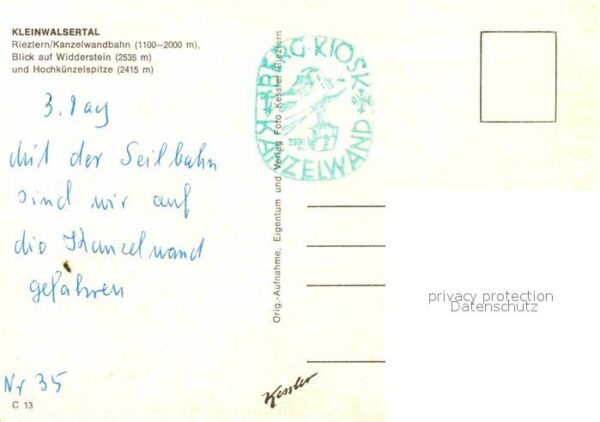 KLEINWALSERTAL
Riezlern/Kanzelwandbahn (1100–2000 m),
Blick auf Widderstein (2535 m)
und Hochkünzelspitze (2415 m)
3. Tag
Mit der Seilbahn
sind wir auf
die Kanzelwand
gefahren
Nr 35
C 13
BERG-KIOSK
2000 m
KANZELWAND
Orig.-Aufnahme, Eigentum und Verlag Foto-Kessler Riezlern
Kessler
privacy protection
Datenschutz